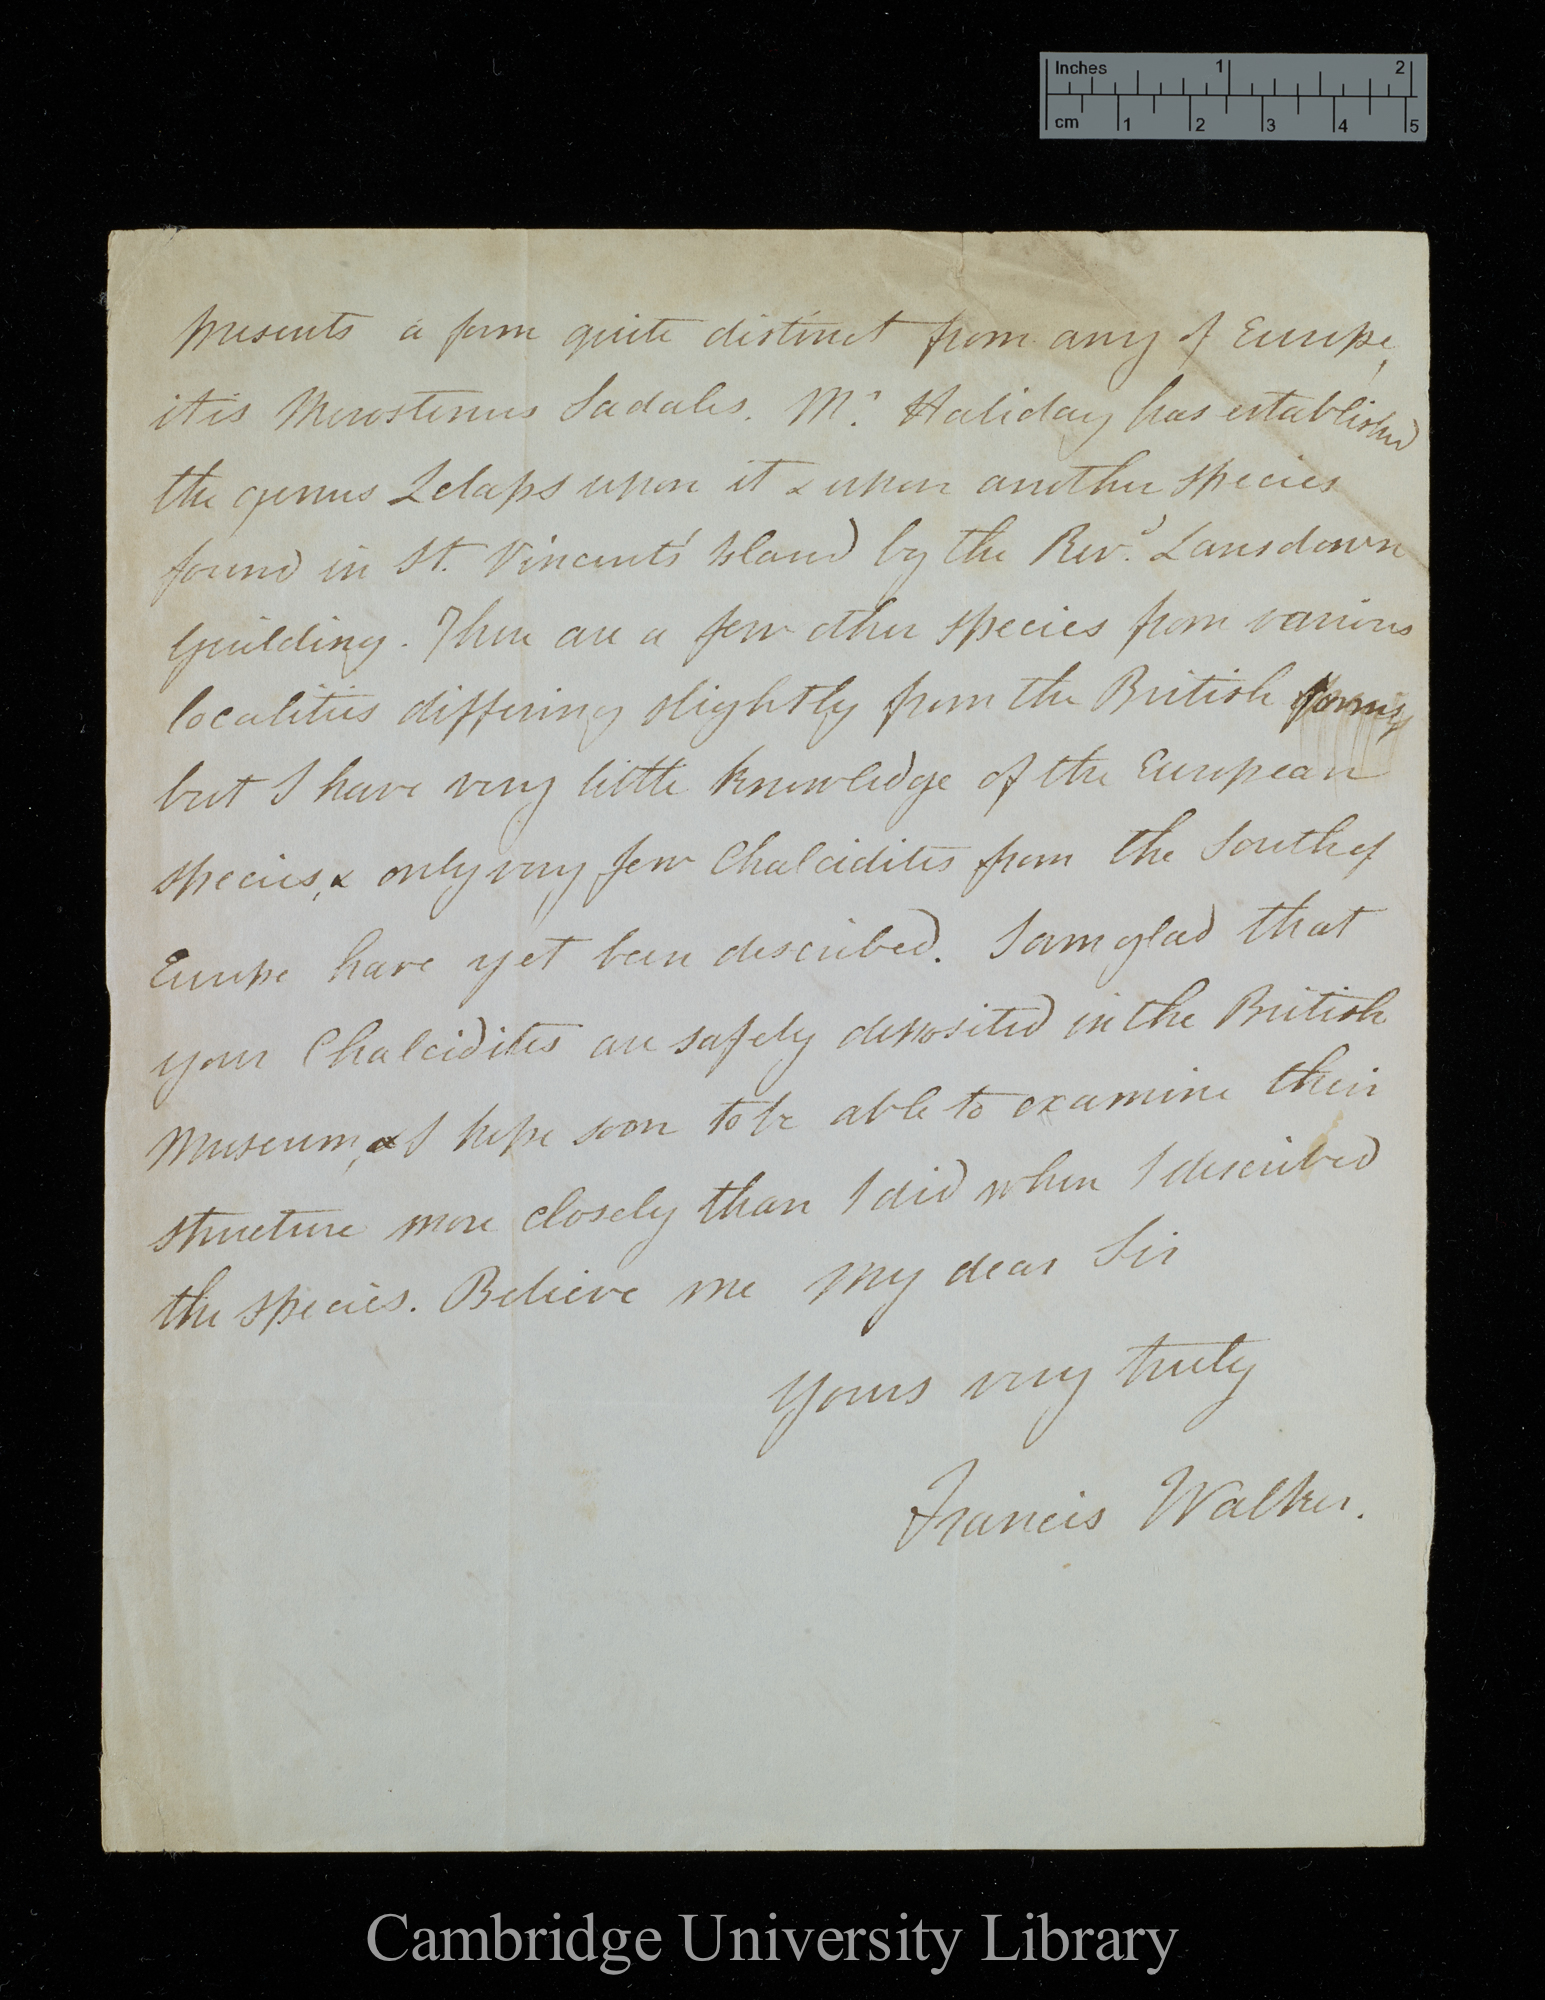 Inches 1 2
cm 1 2 3 4 5
presents a form quite distinct from any of Europe,
it is Merostenus Sadales. Mr. Haliday has established
the genus Lelaps upon it & upon another species
found in St. Vincent's Island by the Revd. Lansdown
Guilding. There are a few other species from various
localities differing slightly from the British forms,
but I have very little knowledge of the European
species, & only very few Chalcidites from the South of
Europe have yet been described. I am glad that
your Chalcidites are safely deposited in the British
Museum, & I hope soon to be able to examine their
structure more closely than I did when I described
the species. Believe me My dear Sir
Yours very truly
Francis Walker.
Cambridge University Library